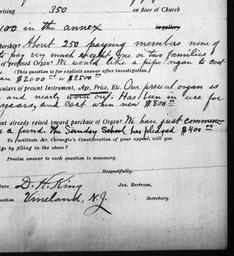 rising 350 on floor of Church
100 in the annex in gallery
About 250 paying members none of
to pay very much except one or two families
of proposed Organ? We would like a pipe organ to cost
an $2000.00 or $2500.00
(This question is for explicit answer after investigation.)
culars of present Instrument, Age, Price, Etc. Our present organ is
and nearly worn out. Has been in use for
years, and Cost when new $800.00
nt already raised toward purchase of Organ? We have just commenc
a fund. The Sunday School has pledged $400.00
To facilitate Mr. Carnegie's Consideration of your appeal, will you
ge by filling in the above?
Precise answer to each question is necessary.
Respectfully,
ture D. H. King Jas. Bertram,
Vineland, N.J. Secretary.